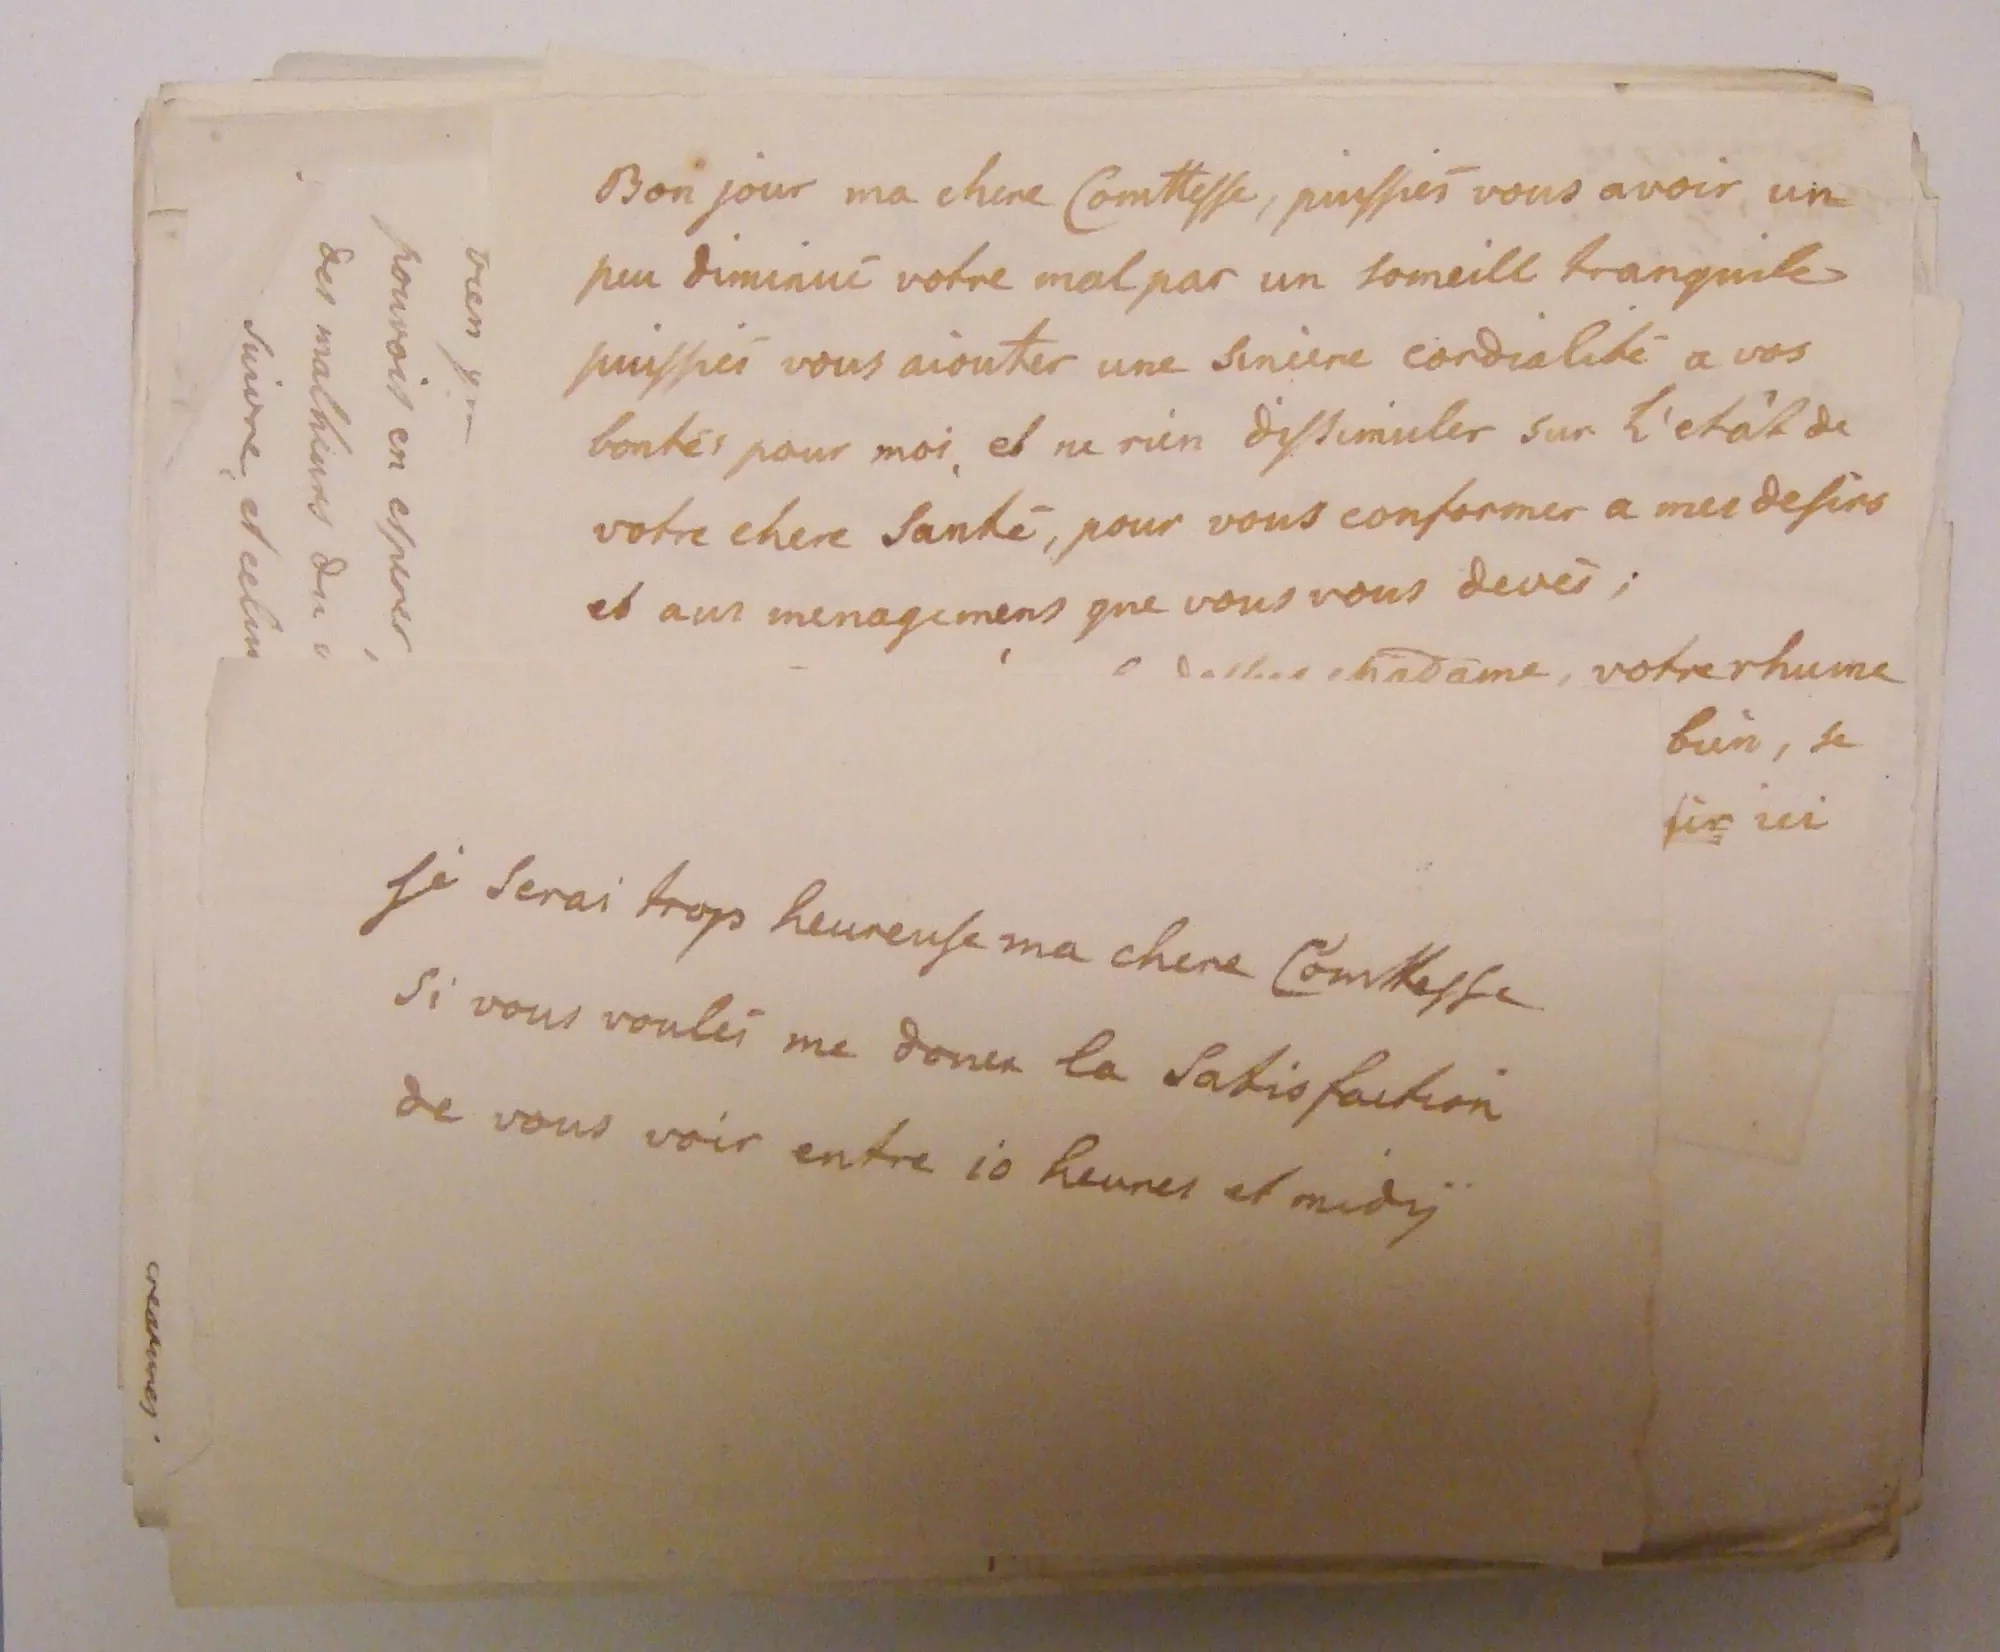 Bon jour ma chere Comttesse, puissiés vous avoir un
peu diminué votre mal par un someill tranquile
puissiés vous aiouter une sincere cordialité a vos
bontés pour moi, et ne rien dissimuler sur l'etât de
votre chere Santé, pour vous conformer a mes desirs
et aux menagemens que vous vous devés;
Madame, votre rhume
bien, se
sir ici
je serai trop heureuse ma chere Comttesse
Si vous voulés me doner la Satisfaction
de vous voir entre 10 heures et midÿ
pouvois en esperer,
des malheurs du
suivre, et celui
creatures.